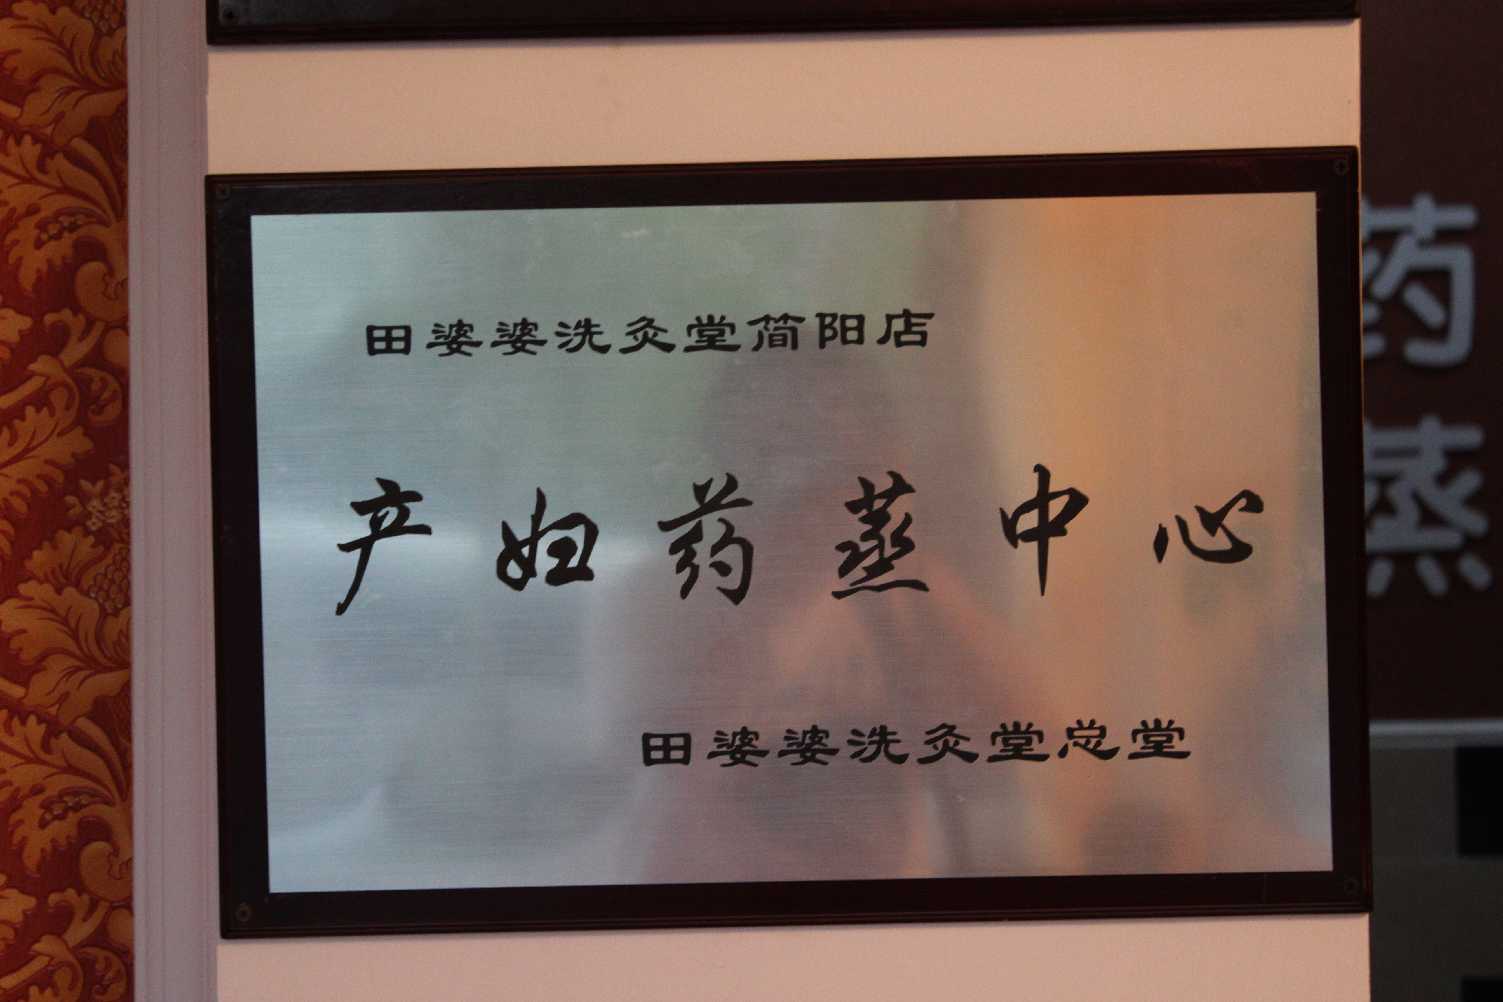 田婆婆洗灸堂简阳店
产妇药蒸中心
田婆婆洗灸堂总堂
药
蒸